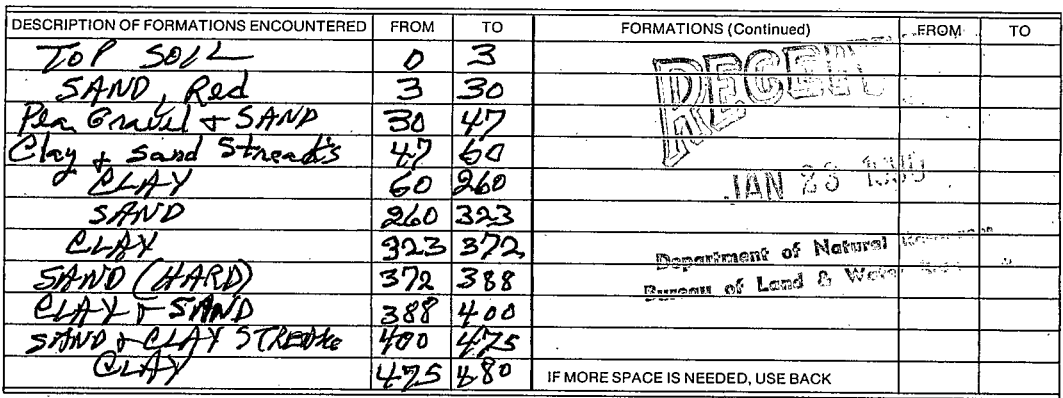 DESCRIPTION OF FORMATIONS ENCOUNTERED FROM TO FORMATIONS (Continued) FROM TO
TOP SOIL 0 3
SAND, Red 3 30
Pea Gravel & SAND 30 47
Clay & Sand Streaks 47 60
CLAY 60 260
SAND 260 323
CLAY 323 372
SAND (HARD) 372 388
CLAY & SAND 388 400
SAND & CLAY STREAKS 400 475
CLAY 475 480
IF MORE SPACE IS NEEDED, USE BACK
JAN 23
Department of Natural
Bureau of Land & Water